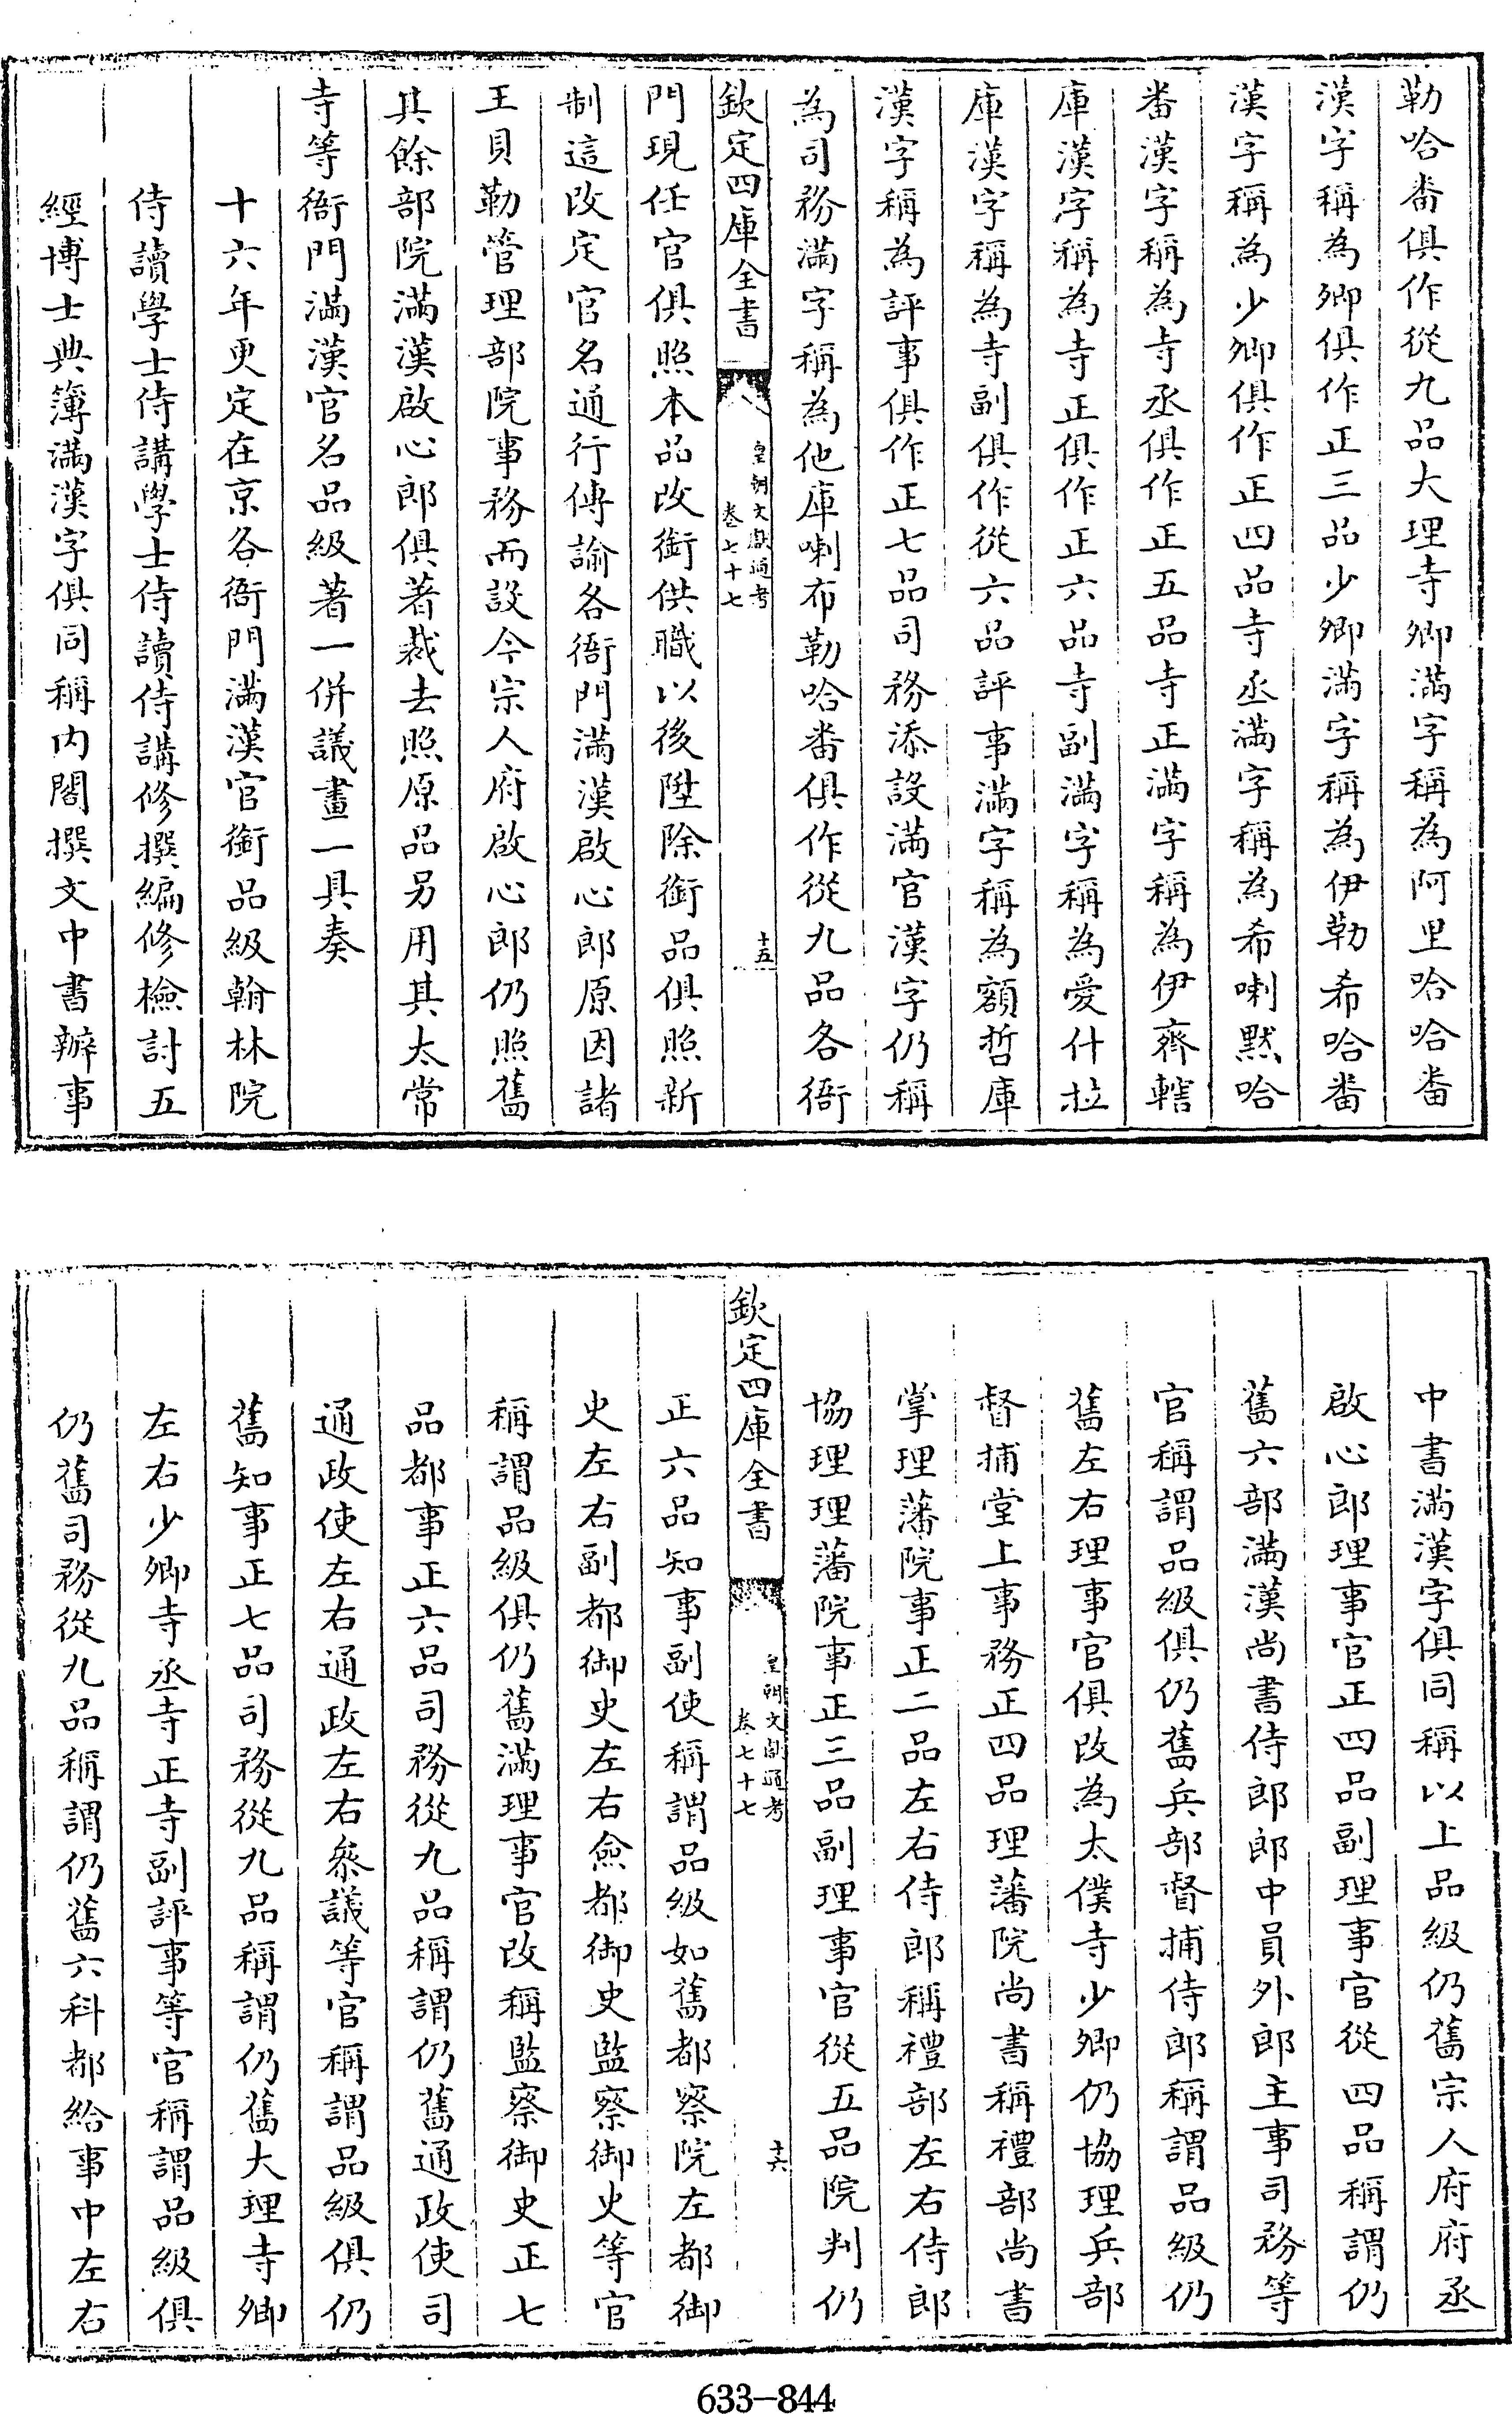 勒哈番俱作從九品大理寺卿滿字稱為阿里哈哈番
漢字稱為卿俱作正三品少卿滿字稱為伊勒希哈番
漢字稱為少卿俱作正四品寺丞滿字稱為希喇默哈
番漢字稱為寺丞俱作正五品寺正滿字稱為伊齊轄
庫漢字稱為寺正俱作正六品寺副滿字稱為愛什拉
庫漢字稱為寺副俱作從六品評事滿字稱為額哲庫
漢字稱為評事俱作正七品司務添設滿官漢字仍稱
為司務滿字稱為他庫喇布勒哈番俱作從九品各衙
欽定四庫全書
皇朝文獻通考
卷七十七
十五
門現任官俱照本品改銜供職以後陞除銜品俱照新
制這改定官名通行傳諭各衙門滿漢啟心郎原因諸
王貝勒管理部院事務而設今宗人府啟心郎仍照舊
其餘部院滿漢啟心郎俱著裁去照原品另用其太常
寺等衙門滿漢官名品級著一併議畫一具奏
十六年更定在京各衙門滿漢官銜品級翰林院
侍讀學士侍講學士侍讀侍講修撰編修檢討五
經博士典簿滿漢字俱同稱内閣撰文中書辦事
中書滿漢字俱同稱以上品級仍舊宗人府府丞
啟心郎理事官正四品副理事官從四品稱謂仍
舊六部滿漢尚書侍郎郎中員外郎主事司務等
官稱謂品級俱仍舊兵部督捕侍郎稱謂品級仍
舊左右理事官俱改為太僕寺少卿仍協理兵部
督捕堂上事務正四品理藩院尚書稱禮部尚書
掌理藩院事正二品左右侍郎稱禮部左右侍郎
協理理藩院事正三品副理事官從五品院判仍
欽定四庫全書
皇朝文獻通考
卷七十七
十六
正六品知事副使稱謂品級如舊都察院左都御
史左右副都御史左右僉都御史監察御史等官
稱謂品級俱仍舊滿理事官改稱監察御史正七
品都事正六品司務從九品稱謂仍舊通政使司
通政使左右通政左右叅議等官稱謂品級俱仍
舊知事正七品司務從九品稱謂仍舊大理寺卿
左右少卿寺丞寺正寺副評事等官稱謂品級俱
仍舊司務從九品稱謂仍舊六科都給事中左右
633-844